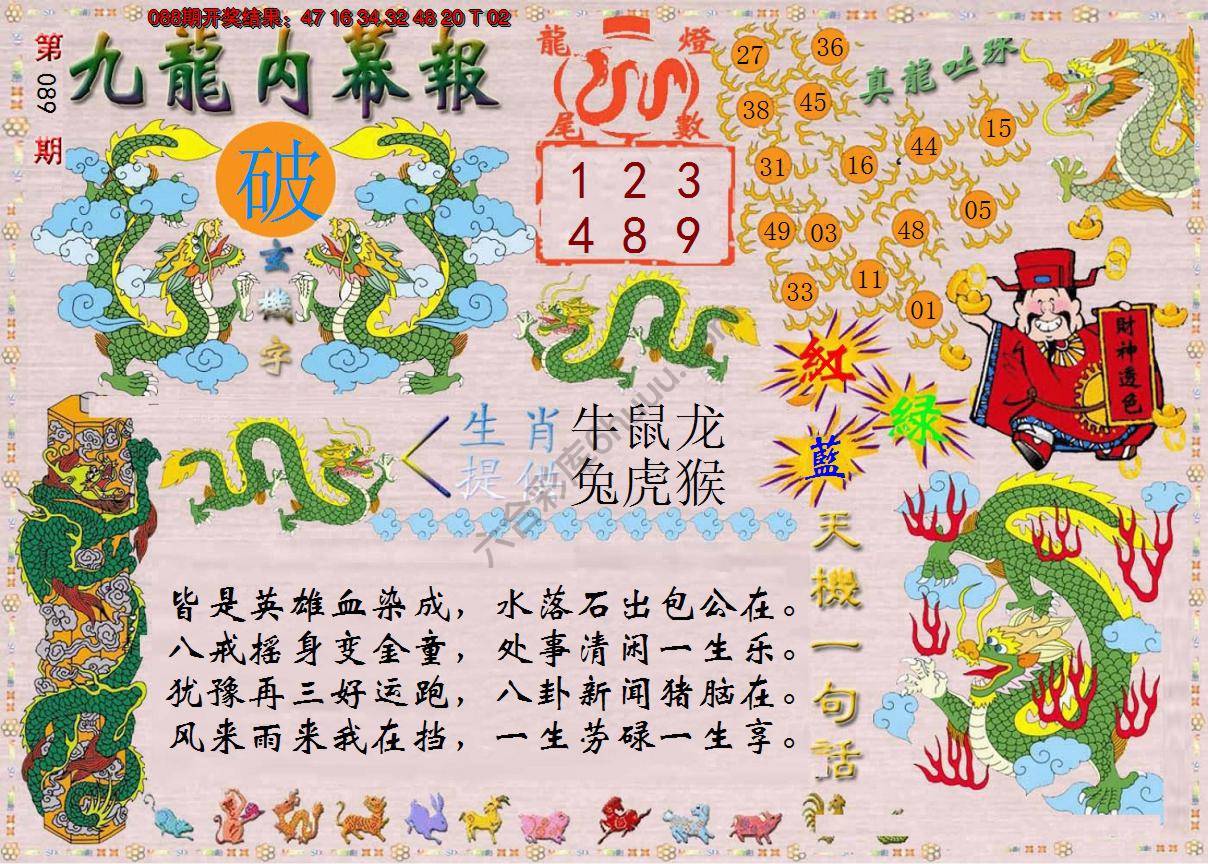 088期开奖结果：47 16 34 32 48 20 T 02
第089期
九龍内幕報
破
玄機字
龍燈尾數
1 2 3
4 8 9
真龍吐珠
27 36
38 45
31 16 44 15
49 03 48 05
33 11 01
財神透色
紅
綠
藍
生肖 牛鼠龙
提供 兔虎猴
天機一句話
皆是英雄血染成，水落石出包公在。
八戒摇身变金童，处事清闲一生乐。
犹豫再三好运跑，八卦新闻猪脑在。
风来雨来我在挡，一生劳碌一生享。